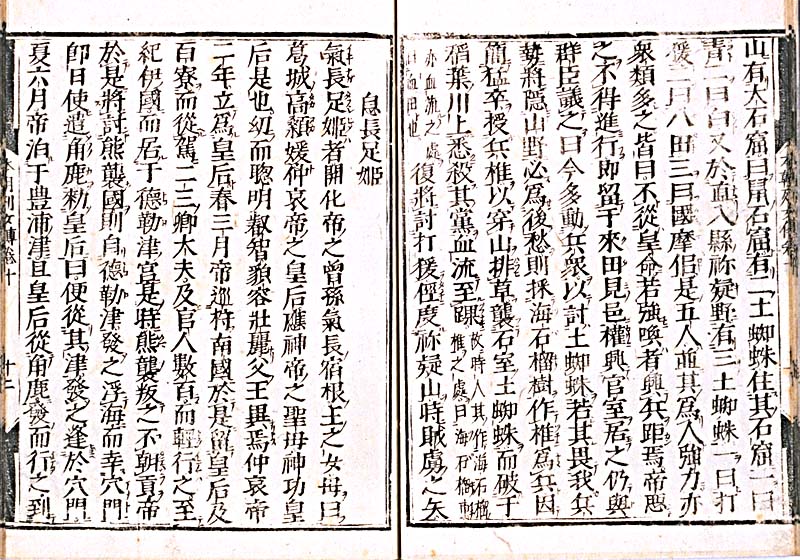 山有大石窟曰鼠石窟有二土蜘蛛住其石窟一曰
青二曰白又於直入縣祢疑野有三土蜘蛛一曰打
猨二曰八田三曰國摩侶是五人並其爲人強力亦
衆類多之皆曰不從皇命若強喚者興兵距焉帝惡
之不得進行即留于來田見邑權興宮室居之仍與
群臣議之曰今多動兵衆以討土蜘蛛若其畏我兵
勢將隱山野必爲後愁則採海石榴樹作椎爲兵因
簡猛卒授兵椎以穿山排草襲石室土蜘蛛而破于
稲葉川上悉殺其黨血流至踝故時人其作海石榴
椎之處曰海石榴市
亦血流之處
曰血田也
復將討打猨徑度祢疑山時賊虜之矢
本朝列女傳卷十
十二
息長足姫
氣長足姫者開化帝之曽孫氣長宿根王之女母曰
葛城高顙媛仲哀帝之皇后應神帝之聖母神功皇
后是也幼而聰明叡智貌容壯麗父王異焉仲哀帝
二年立爲皇后春三月帝巡狩南國於是留皇后及
百寮而從駕二三卿大夫及官人數百而輕行之至
紀伊國而居于德勒津宮是時熊襲叛之不朝貢帝
於是將討熊襲國則自德勒津發之浮海而幸穴門
即日使遣角鹿勅皇后曰便從其津發之逢於穴門
夏六月帝泊于豊浦津且皇后從角鹿發而行之到